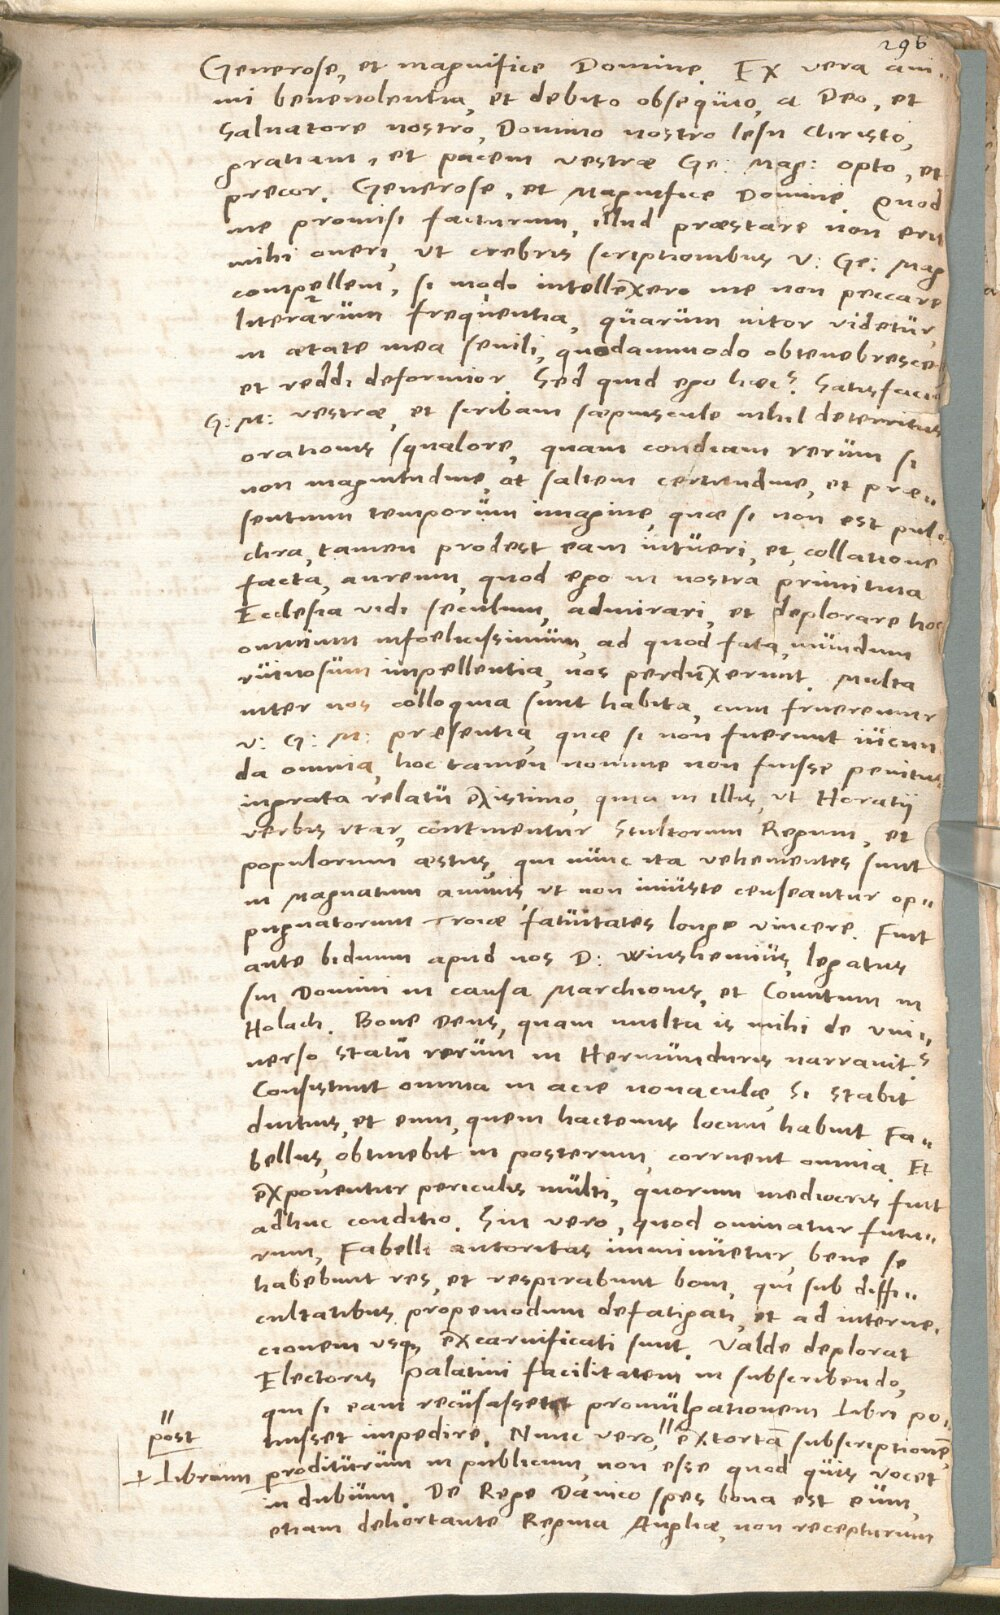 296
Generose, et magnifice Domine. Ex vera ani„
mi benevolentia, et debito obsequio, a Deo, et
Salvatore nostro, Domino nostro Iesu Christo,
gratiam, et pacem vestræ Ge: Mag: opto, et
precor. Generose, et Magnifice Domine. Quod
me promisi facturum, illud præstare non erit
mihi oneri, ut crebris scriptionibus V: Ge: Mag
compellem, si modo intellexero me non peccare
literarum frequentia, quarum nitor videtur,
in ætate mea senili, quodammodo obtenebrescere
et reddi deformior. Sed quid ego hæc? Satisfaciã
G: M: vestræ, et scribam sæpiuscule nihil deterritus
orationis squalore, quam condiam rerum si
non magnitudine, at saltem certitudine, et præ„
sentium temporum imagine, quæ si non est pul„
chra, tamen prodest eam intueri, et collatione
facta, aureum, quod ego in nostra primitiva
Ecclesia vidi seculum, admirari, et deplorare hoc
omnium infoelicissimum, ad quod fata, mundum
ruinosum impellentia, nos perduxerunt. Multa
inter nos colloquia sunt habita, cum frueremur
V: G: M: præsentia, quæ si non fuerunt iucun
da omnia, hoc tamen nomine non fuisse penitus
ingrata relatu existimo, quia in illis, ut Horatij
verbis utar, continentur Stultorum Regum, et
populorum æstus, qui nunc ita vehementes sunt
in Magnatum animis, ut non iniuste censeantur op„
pugnatorum Troiæ fatuitates longe vincere. Fuit
ante biduum apud nos D: Winshemius, legatus
sui Domini in causa Marchionis, et Comitum in
Holach. Bone Deus, quam multa is mihi de uni„
verso statu rerum in Hermunduris narravit?
Consistunt omnia in acie novaculæ, Si stabit
diutius, et eum, quem hactenus locum habuit Fa„
bellus, obtinebit in posterum, corruent omnia. Et
exponentur periculis multi, quorum mediocris fuit
adhuc conditio. Sin vero, quod ominatur futu„
rum, Fabelli autoritas imminuetur, bene se
habebunt res, et respirabunt boni, qui sub diffi„
cultatibus propemodum defatigati, et ad interne„
cionem usq; excarnificati sunt. Valde deplorat
Electoris Palatini facilitatem in subscribendo,
qui si eam recusasset promulgationem Libri po„
tuisset impedire. Nunc vero, " extortã subscriptionẽ,
" post
+ Librum proditurum in publicum, non esse quod quis vocet
in dubium. De Rege Danico spes bona est eum,
etiam dehortante Regina Angliæ, non recepturum